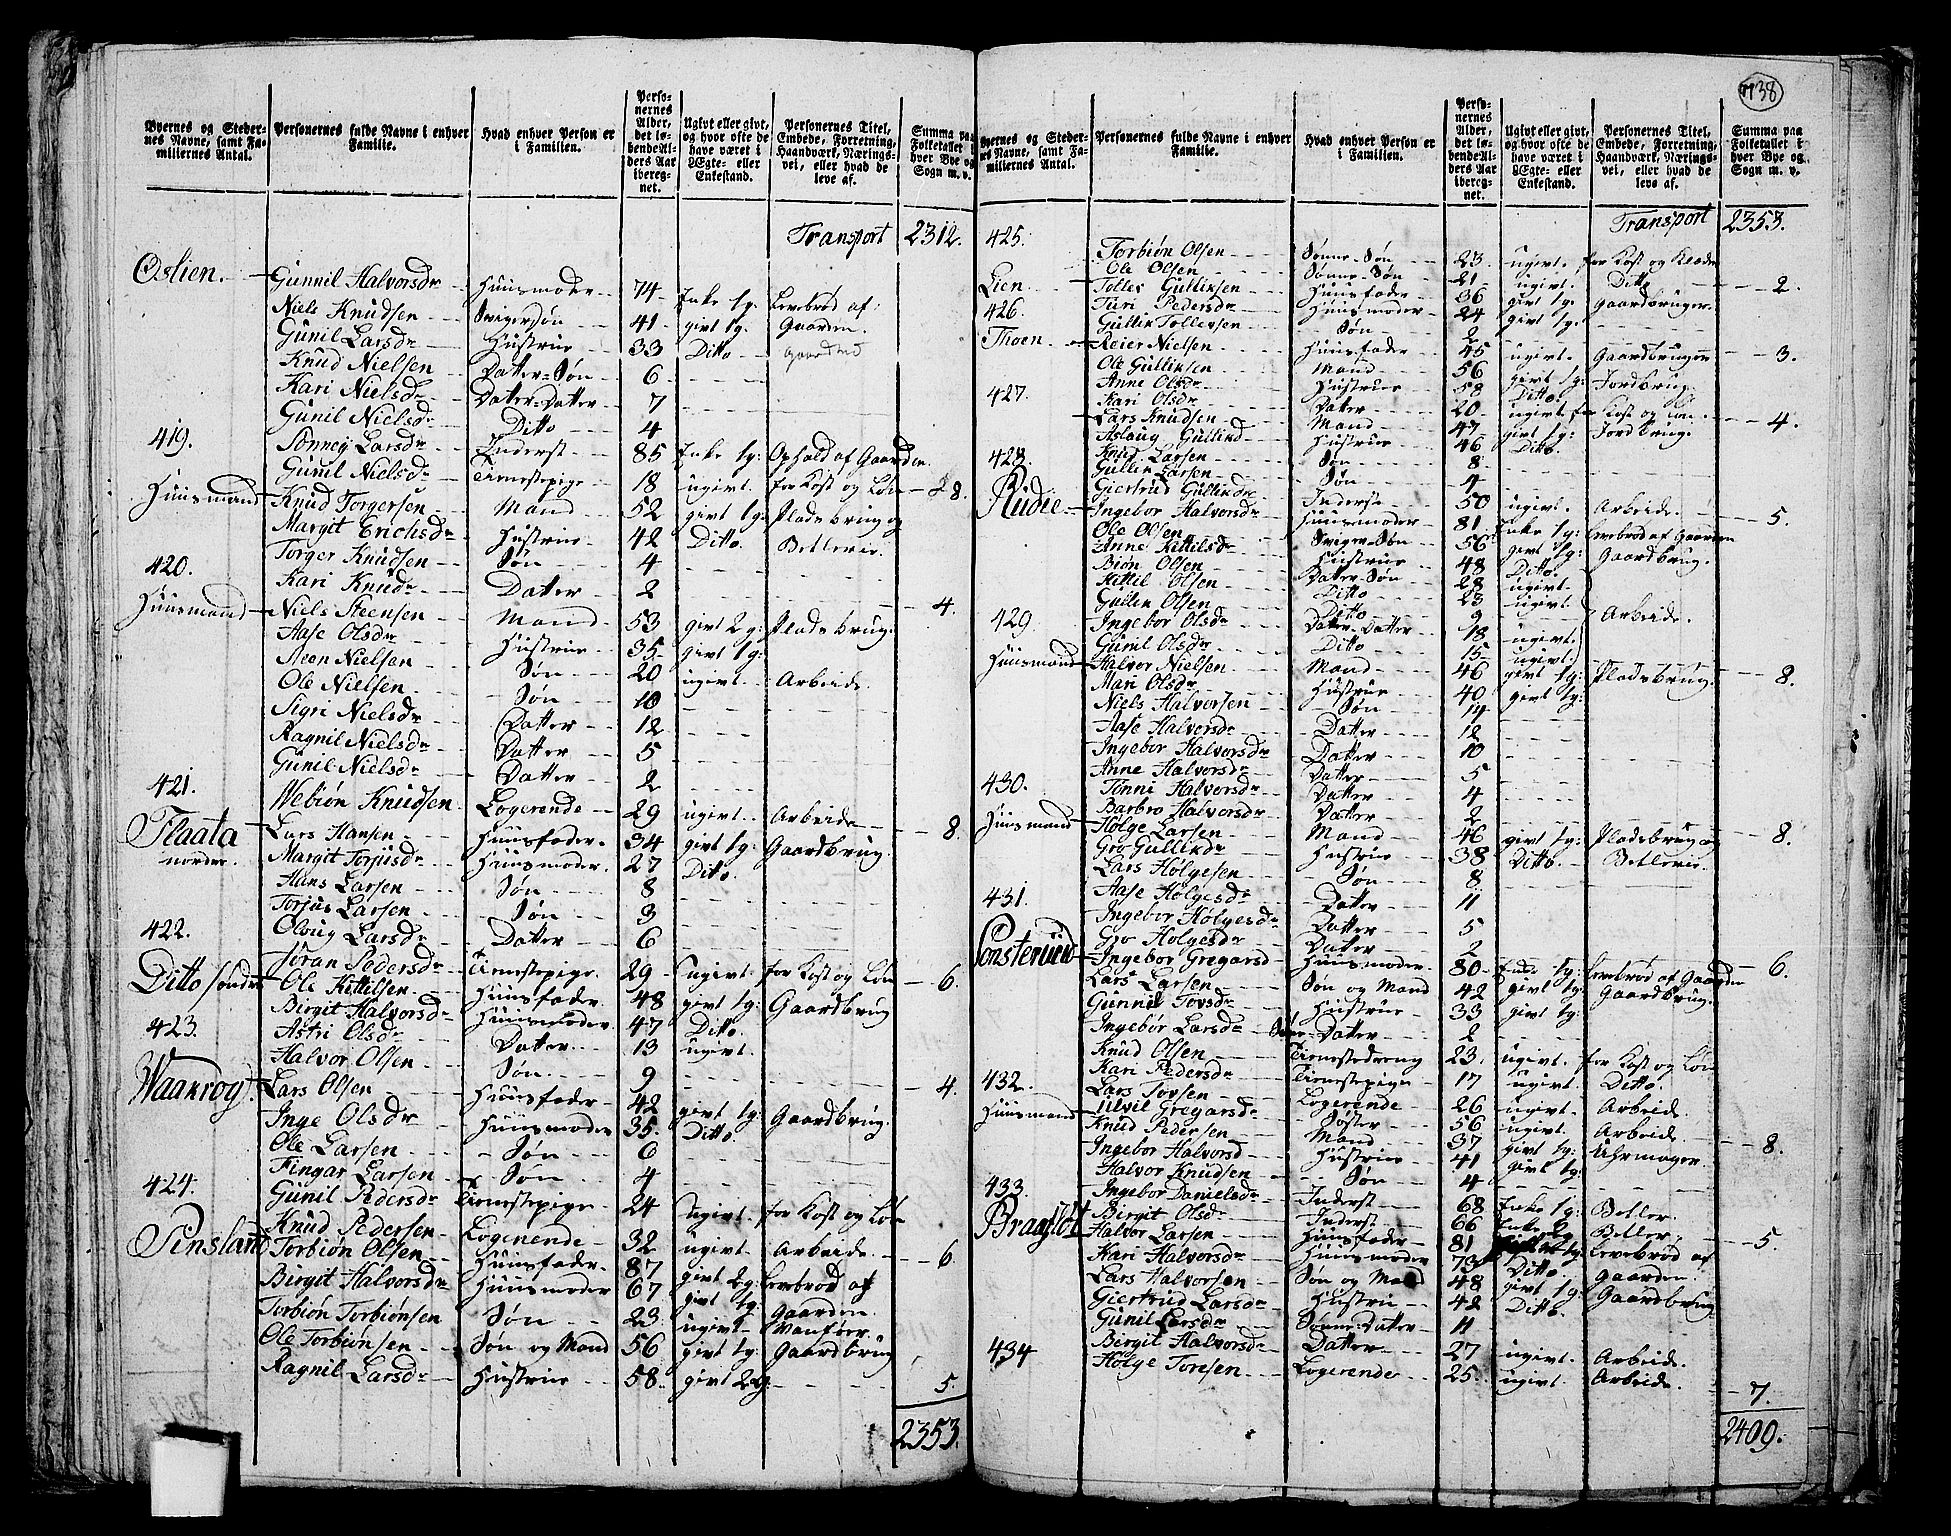 738
Byernes og Steder-nes Navne, samt Fa-miliernes Antal.
Personernes fulde Navne i enhver Familie.
Hvad enhver Person er i Familien.
Perso-nernes Alder, det lø-bende Al-ders Aar ibereg-net.
Ugivt eller givt, og hvor ofte de have været i Ægte- eller Enkestand.
Personernes Titel, Embede, Forretning, Haandværk, Nærings-vei, eller hvad de leve af.
Summa paa Folketallet i hver Bye og Sogn m. v.
Transport 2312.
Oslien. Gunnil Halvorsdr Huusmoder 74 Enke 1g: Levebrød af
Niels Knudsen Svigersøn 41 givt 1g: Gaarden.
Gunil Larsdr Hustrue 33 Ditto
Knud Nielsen Datter-Søn 6
Kari Nielsdr Datter-Datter 7
Gunil Nielsdr Ditto 4
419. Sonney Larsdr Inderst 85 Enke 1g: Ophold af Gaarden
Gunil Nielsdr Tienestepige 18 ugivt. for Kost og Løn 8.
Huusmand Knud Torgersen Mand 52 givt 1g: Pladsbrug og
Margit Erichsdr Hustrue 42 Ditto. Betlerie.
Torger Knudsen Søn 4
420. Kari Knudsdr Datter 2 4.
Huusmand Niels Steensen Mand 53 givt 2g: Pladsbrug.
Aase Olsdr Hustrue 35 givt 1g:
Steen Nielsen Søn 20 ugivt. Arbeide.
Ole Nielsen Søn 10
Sigri Nielsdr Datter 12
Ragnil Nielsdr Datter 5
Gunil Nielsdr Datter 2
421. Webiøn Knudsen Logerende 29 ugivt. Arbeide 8.
Flaata Lars Hansen Huusfader 34 givt 1g: Gaardbrug.
nordre. Margit Torjusdr Huusmoder 27 Ditto.
Hans Larsen Søn 8
Torjus Larsen Søn 3
422. Oloug Larsdr Datter 6
Jøran Pedersdr Tienestepige 29 ugivt. for Kost og Løn 6.
Ditto søndre Ole Kittilsen Huusfader 48 givt 1g: Gaardbrug
Birgit Halvorsdr Huusmoder 47 Ditto.
423. Astri Olsdr Datter 13 ugivt.
Halvor Olsen Søn 9 4.
Lars Olsen Huusfader 42 givt 1g: Gaardbrug.
Inge Olsdr Huusmoder 35. Ditto.
Ole Larsen Søn 6
Fingar Larsen Søn 4
424. Gunil Pedersdr Tienestepige 24 ugivt. for Kost og Løn
Knud Pedersen Logerende 32 ugivt. Arbeide. 6.
Torbiøn Olsen Huusfader. 87 givt 2g: Levebrød af
Birgit Halvorsdr Huusmoder 67 givt 1g: Gaarden
Torbiøn Torbiønsen Søn 23 ugivt Vanfør.
Ole Torbiønsen Søn og Mand 56 givt 1g: Gaardbrug
Ragnil Larsdr Hustrue 58. givt 2g. 5.
2353.
Byernes og Steder-nes Navne, samt Fa-miliernes Antal.
Personernes fulde Navne i enhver Familie.
Hvad enhver Person er i Familien.
Perso-nernes Alder, det lø-bende Al-ders Aar ibereg-net.
Ugivt eller givt, og hvor ofte de have været i Ægte- eller Enkestand.
Personernes Titel, Embede, Forretning, Haandværk, Nærings-vei, eller hvad de leve af.
Summa paa Folketallet i hver Bye og Sogn m. v.
Transport 2353.
425. Torbiøn Olsen Sønne-Søn 23. ugivt. for Kost og Klæder
Ole Olsen Sønne-Søn 21 ugivt. Ditto 2.
Lien Tollef Gulliksen Huusfader 36 givt 1g: Gaardbruger
426. Turi Pedersdr Huusmoder 24 givt 1g.
Gullik Tollevsen Søn 2 3.
Thoen Reier Nielsen Huusfader 45 ugivt. Gaardbruger
Ole Gulliksen Mand 56 givt 1g: Jordbrug.
Anne Olsdr Hustrue 58 Ditto
427. Kari Olsdr Datter 20 ugivt for Kost og Løn 4.
Lars Knudsen Mand 47 givt 1g: Jordbrug.
Aslaug Gulliksd Hustrue 46 Ditto.
428. Knud Larsen Søn 8
Gullik Larsen Søn 4
Giertrud Gulliksdr Inderste 50 ugivt. Arbeide. 5.
Rudie Ingebor Halvorsdr Huusmoder 81 Enke 1g: Levebrød af Gaarden
Ole Olsen Sviger-Søn 56 givt 1g: Gaardbrug.
Anne Kittilsdr Hustrue 48 Ditto.
Biøn Olsen Datter-Søn 28 ugivt.
Kittil Olsen Ditto 23 ugivt Arbeide.
Gullik Olsen Ditto 9
429. Ingebor Olsdr Datter-Datter 18 ugivt.
Gunil Olsdr Ditto 15 ugivt. 8.
Huusmand Halvor Nielsen Mand 46 givt 1g: Pladsbrug.
Mari Olsdr Hustrue 40 givt 1g:
Niels Halvorsen Søn 14
Aase Halvorsdr Datter 12
Ingebor Halvorsdr Datter 10
Anne Halvorsdr Datter 5
430. Tønni Halvorsdr Datter 4
Barbro Halvorsdr Datter 2 8.
Huusmand Holge Larsen Mand 46 givt 1g: Pladsbrug og
Gro Gulliksdr Hustrue 38 Ditto Betlerie.
Lars Holgesen Søn 8
431. Aase Holgesdr Datter 11
Ingebor Holgesdr Datter 5
Gro Holgesdr Datter 2 6.
Ingebor Gregarsd Huusmoder. 80 Enke 1g: Levebrød af Gaarden
Lars Larsen Søn og Mand 42 givt 1g: Gaardbrug.
Gunnil Tovsdr Hustrue 33 givt 1g:
Ingebør Larsdr Datter 2
Knud Olsen Tienestedreng 23. ugivt. for Kost og Løn
432. Kari Pedersdr Tienestepige 17 ugivt. Ditto.
Lars Tovsen Logerende 26 ugivt. Arbeide.
Gregarsdr Søster 56 ugivt. Arbeide. 8.
Huusmand Knud Pedersen Mand 37 givt 1g: Uhrmager.
Ingebor Halvorsd Hustrue 41 givt 1g:
Halvor Knudsen Søn 4
433. Ingebor Danielsdr Inderst 68 Enke 1g: Betler.
Birgit Olsdr Inderst 66 Enke Betler. 5.
Halvor Larsen Huusfader 81 Levebrød af
Kari Halvorsdr Huusmoder 73 Ditto. Gaarden
Lars Halvorsen Søn og Mand 48 givt 1g: Gaardbrug
Giertrud Larsdr Hustrue 42 Ditto.
Gunil Larsdr Sønne-Datter 11
434 Birgit Halvorsdr Datter 27 ugivt. Arbeide.
Holge Toresen Logerende 25. ugivt. Arbeide. 7.
2409.